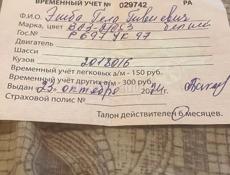 ВРЕМЕННЫЙ УЧЕТ № 029742 РА
Ф.И.О.
Марка, цвет ВАЗ-21053 белый
Гос.№ Р 697 УК 97
Двигатель
Шасси
Кузов 2018016
Временный учёт легковых а/м - 150 руб.
Временный учёт других а/м - 300 руб.
Выдан 23 октября 2024г.
Страховой полис №
Талон действителен 6 месяцев.